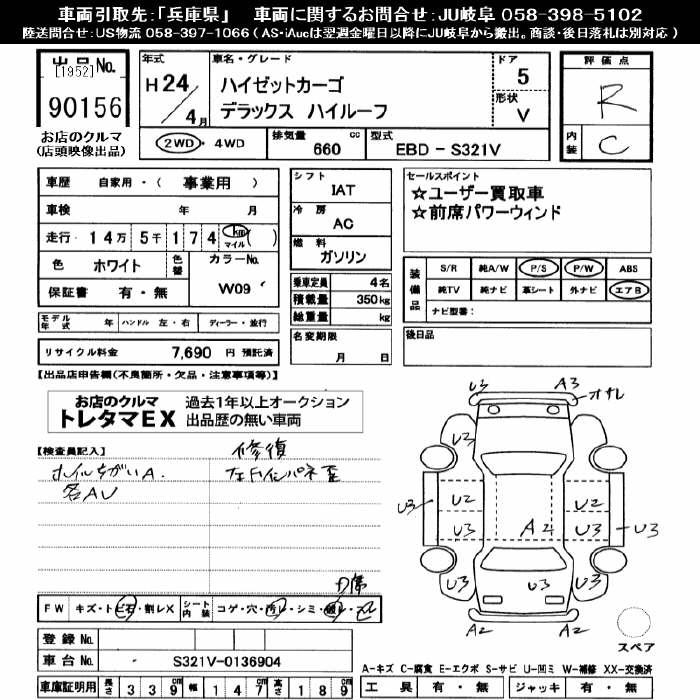 車両引取先:「兵庫県」 車両に関するお問合せ:JU岐阜 058-398-5102
陸送問合せ:US物流 058-397-1066(AS・iAucは翌週金曜日以降にJU岐阜から搬出。商談・後日落札は別対応)
出品No.
[1952]
90156
お店のクルマ
(店頭映像出品)
年式
H 24/4月
車名・グレード
ハイゼットカーゴ
デラックス ハイルーフ
ドア
5
形状
V
2WD・4WD
排気量 660 cc
型式 EBD-S321V
評価点
R
内装
C
車歴 自家用・(事業用)
車検 年 月
走行・14万5千174 km マイル ( )
色 ホワイト
色替
カラーNo.
W09
保証書 有・無
モデル年式 年 ハンドル 左・右 ディーラー・並行
リサイクル料金 7,690 円 預託済
シフト
IAT
冷房
AC
燃料
ガソリン
乗車定員 4名
積載量 350kg
総重量 kg
名変期限
月 日
セールスポイント
☆ユーザー買取車
☆前席パワーウィンド
装備品
S/R 純A/W P/S P/W ABS
純TV 純ナビ 革シート 外ナビ エアB
ナビ型番:
後日品
【出品店申告欄(不良箇所・欠品・注意事項等)】
お店のクルマ
トレタマEX
過去1年以上オークション
出品歴の無い車両
【検査員記入】
ホイルちがいA.
各AU
修復
左Fインパネ歪
D席
FW キズ・ト ビ石・割レX シート内装 コゲ・穴・汚レ・シミ・破レ・
登録No.
車台No. S321V-0136904
車庫証明用 長さ 339 幅 147 高さ 189
U3
A3
オサレ
U3
U3
U3
U2
U2
U3
A2
U3
U3
U3
U3
U3
A2
A2
スペア
A-キズ C-腐食 E-エクボ S-サビ U-凹ミ W-補修 XX-交換済
工具 有・無 ジャッキ 有・無